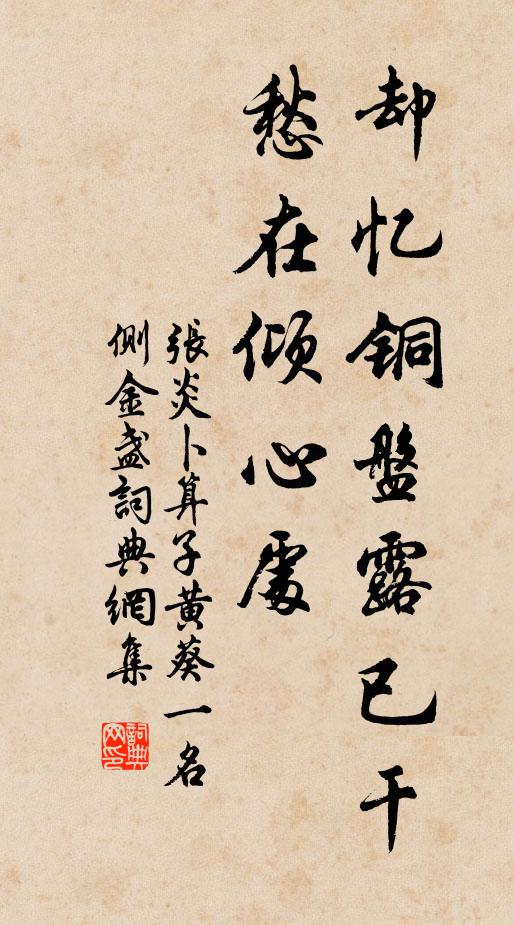 却忆铜盘露已干
愁在倾心處
張炎卜算子黄葵一名
側金盏詞典網集
詞典网印